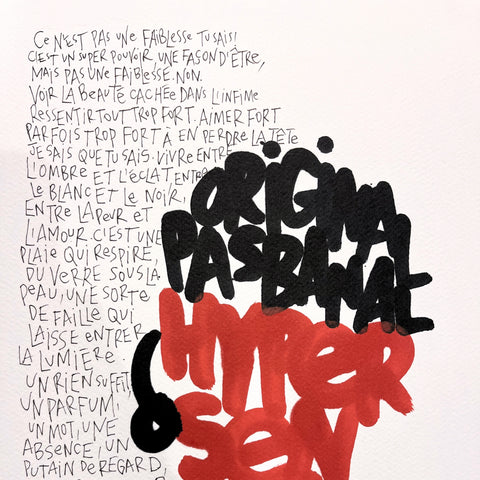 CE N'EST PAS UNE FAIBLESSE TU SAIS!
C'EST UN SUPER POUVOIR, UNE FASON D'ÊTRE,
MAIS PAS UNE FAIBLESSE. NON.
VOIR LA BEAUTÉ CACHÉE DANS L'INFIME
RESSENTIR TOUT TROP FORT. AIMER FORT
PARFOIS TROP FORT À EN PERDRE LA TÊTE
JE SAIS QUE TU SAIS. VIVRE ENTRE
L'OMBRE ET L'ÉCLAT ENTRE
LE BLANC ET LE NOIR,
ENTRE LA PEUR ET
L'AMOUR. C'EST UNE
PLAIE QUI RESPIRE,
DU VERRE SOUS LA
PEAU, UNE SORTE
DE FAILLE QUI
LAISSE ENTRER
LA LUMIÈRE.
UN RIEN SUFFIT
UN PARFUM,
UN MOT, UNE
ABSENCE, UN
PUTAIN DE REGARD,
ORIGINAL
PAS BANAL
HYPER
SEN